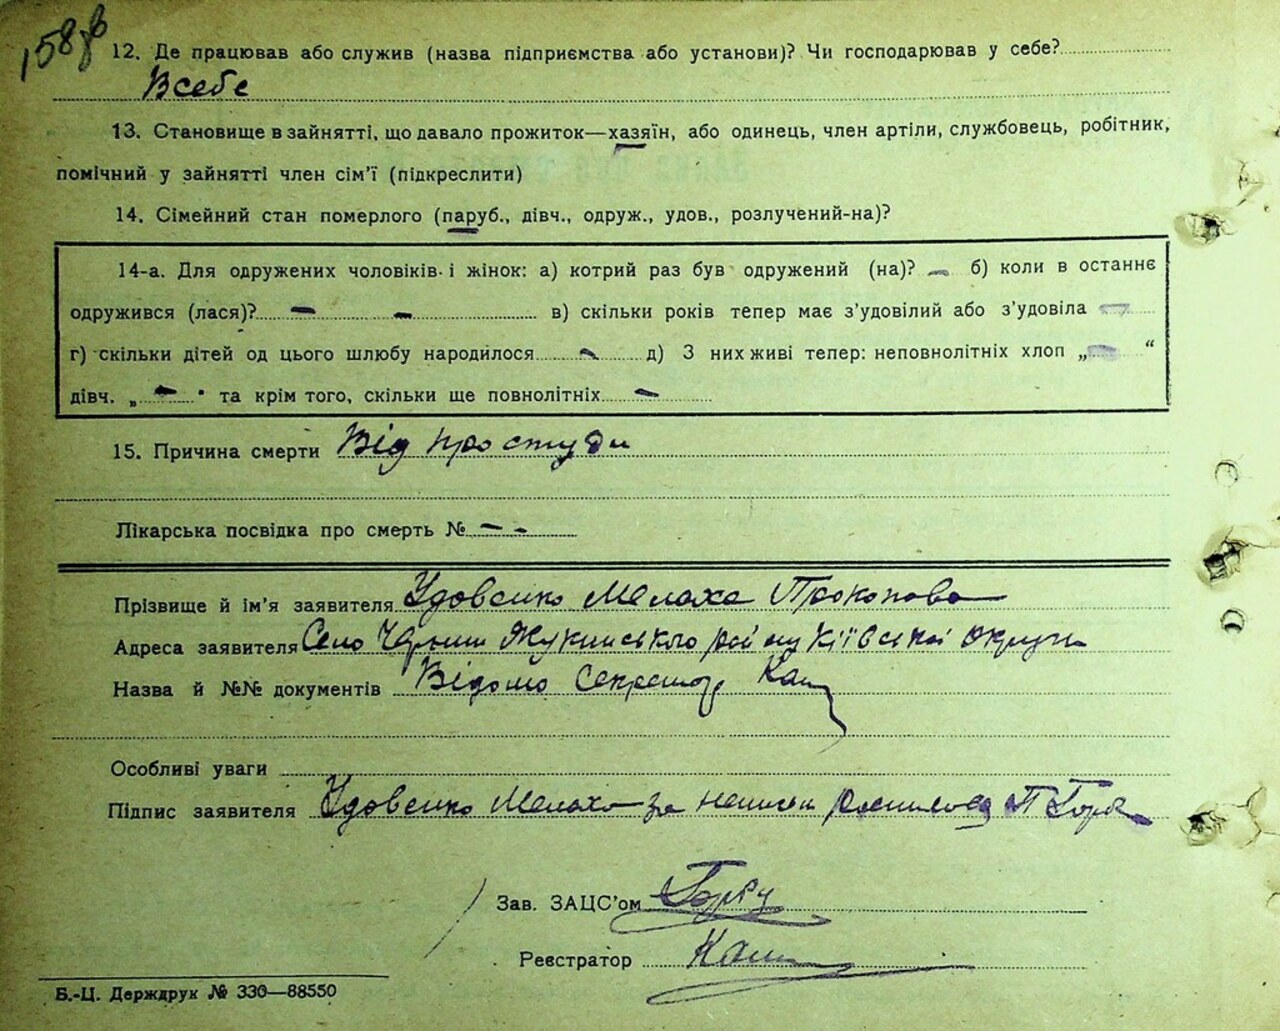 12. Де працював або служив (назва підприємства або установи)? Чи господарював у себе?
Всебе
13. Становище в зайнятті, що давало прожиток—хазяїн, або одинець, член артіли, службовець, робітник,
помічний у зайнятті член сім'ї (підкреслити)
14. Сімейний стан померлого (паруб., дівч., одруж., удов., розлучений-на)?
14-а. Для одружених чоловіків і жінок: а) котрий раз був одружений (на)? — б) коли в останнє
одружився (лася)? — — в) скільки років тепер має з'удовілий або з'удовіла —
г) скільки дітей од цього шлюбу народилося — д) З них живі тепер: неповнолітніх хлоп „—“
дівч. „—" та крім того, скільки ще повнолітніх —
15. Причина смерти Від простуди
Лікарська посвідка про смерть № - -
Прізвище й ім'я заявителя Удовенко Мелаха Прокопова
Адреса заявителя Село Київської округи
Назва й №№ документів Відомо Секретар
Особливі уваги
Підпис заявителя Удовенко Мелаха за
Зав. ЗАЦС'ом
Реєстратор
Б.-Ц. Держдрук № 330—88550